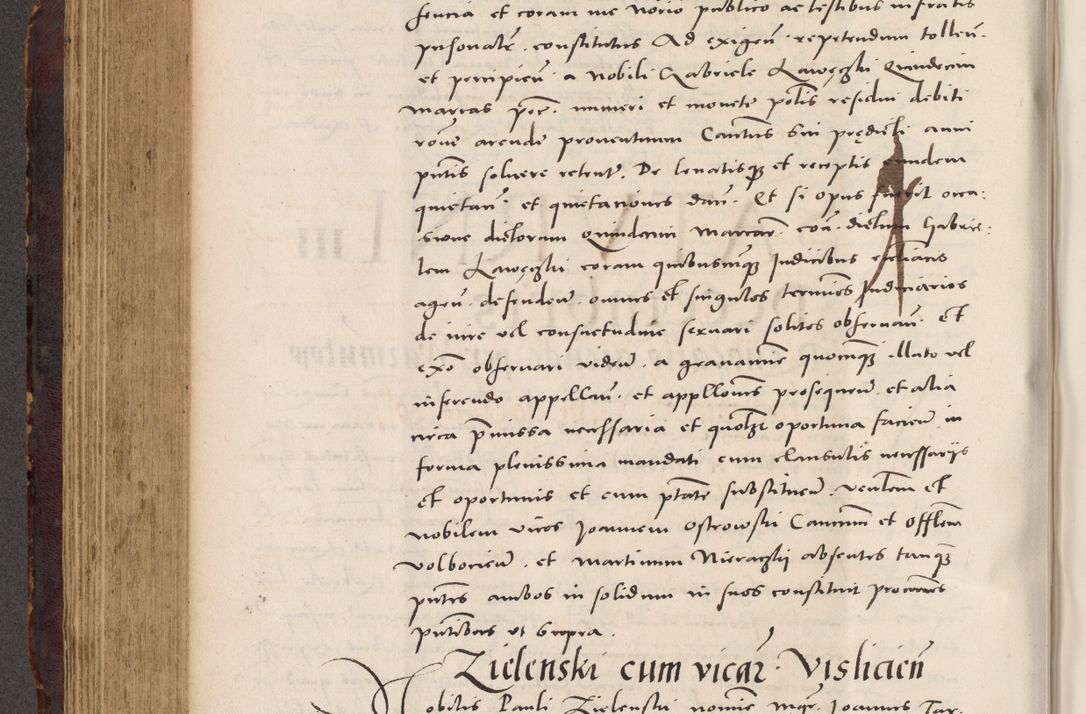 sencia et coram me Nōrio publico ac testibus infratis
psonalr̄ . constitutus Ad exigen̄ . repetendum tollen̄ .
et percipien̄ . a Nobili Gabriele Lawęczki Quindecim
marcas pec̄ . numeri et monete polīs residui debiti
rōne arende proventuum Cantus sui prędicti anni
pn̄tis solvere retent̄ . De levatisqȝ et receptis eundem
quietan̄ . et quietaciones dan̄ . Et si opus fuerit occa:
sione dictorum Quindecim Marcar̄ . con̄ . dictum Gabrie:
lem Lawęczki coram quibuscunqȝ Judicibus ecclīacis
agen̄ . defenden̄ . omnes et singulos terminos Judiciarios
de iure vel consuetudine servari solitos observan̄ . et
exn̄o observari viden̄ . a gravamine quocunqȝ illato vel
inferendo appellan̄ . et appllōnis prosequen̄ . et alia
circa pr̄missa necessaria et quōlȝ oportuna facien̄ . in
forma plenissima mandati cum clausulis necessarijs
et oportunis et cum ptāte substituen̄ . venlēm et
nobilem viros Joannem Ostrowski Canicum et Offlēm
volborien̄ . et Martinum Nieraczki absentes tanqȝ
pn̄tes ambos in solidum in suos constituit procures
pn̄tibus ut supra .
Zielenski cum vicar̄ . Vislicien̄
Nobilis Pauli Zielenski nomine mgr̄ . Joannis Tar.